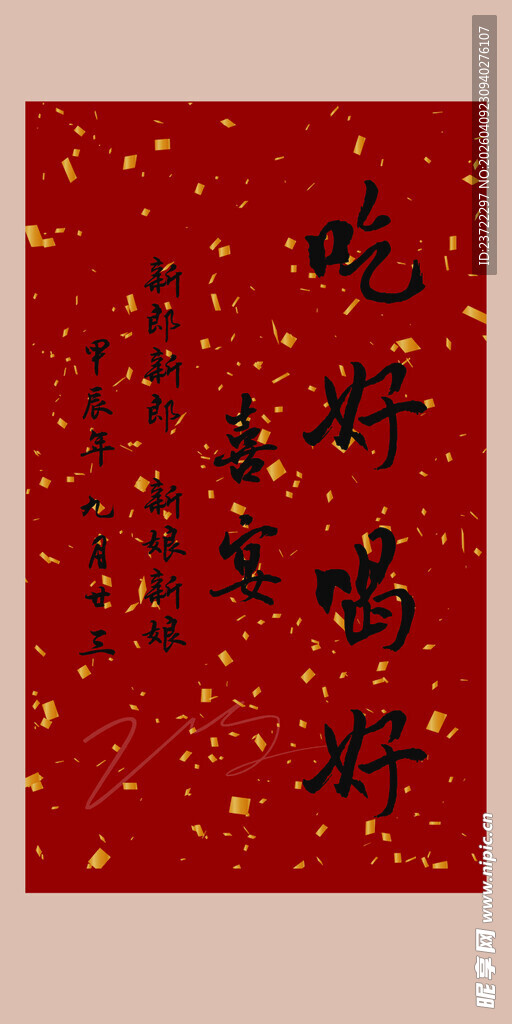 吃好喝好
喜宴
新郎新郎 新娘新娘
甲辰年 九月廿三
ID:23722297 NO:20260409230940276107
昵享网 www.nipic.cn